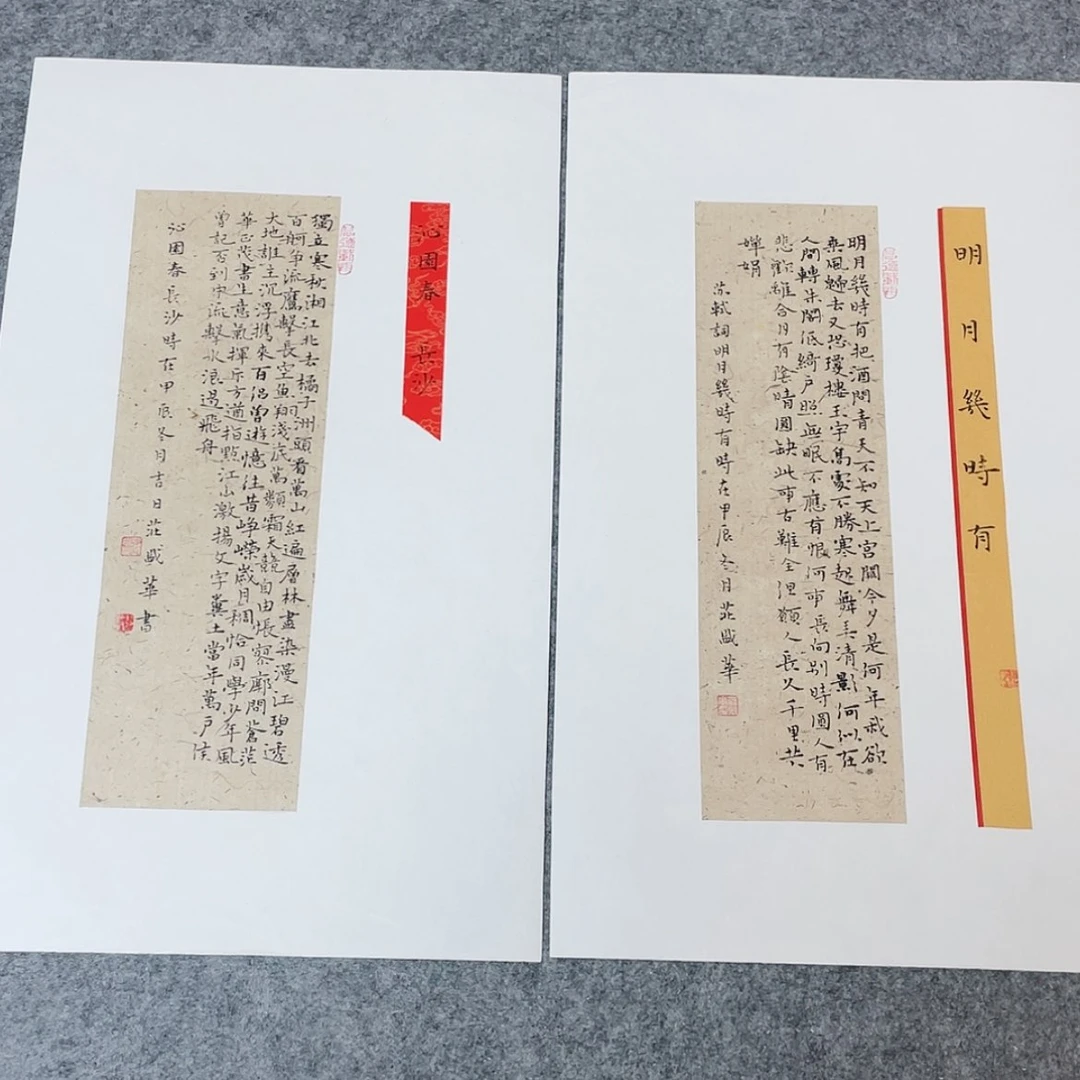 沁園春 長沙
獨立寒秋湘江北去橘子洲頭看萬山紅遍層林盡染漫江碧透
百舸争流鷹擊長空魚翔淺底萬類霜天競自由悵寥廓問蒼茫
大地誰主沉浮携來百侣曾遊憶往昔崢嶸歲月稠恰同學少年風
華正茂書生意氣揮斥方遒指點江山激揚文字糞土當年萬户侯
曾記否到中流擊水浪遏飛舟
沁園春長沙時在甲辰冬月吉日莊盛華書
明月幾時有
明月幾時有把酒問青天不知天上宫闕今夕是何年我欲
乘風歸去又恐瓊樓玉宇高處不勝寒起舞弄清影何似在
人間轉朱閣低綺户照無眠不應有恨何事長向别時圓人有
悲歡離合月有陰晴圓缺此事古難全但願人長久千里共
嬋娟
苏軾詞明月幾時有時在甲辰冬月莊盛華